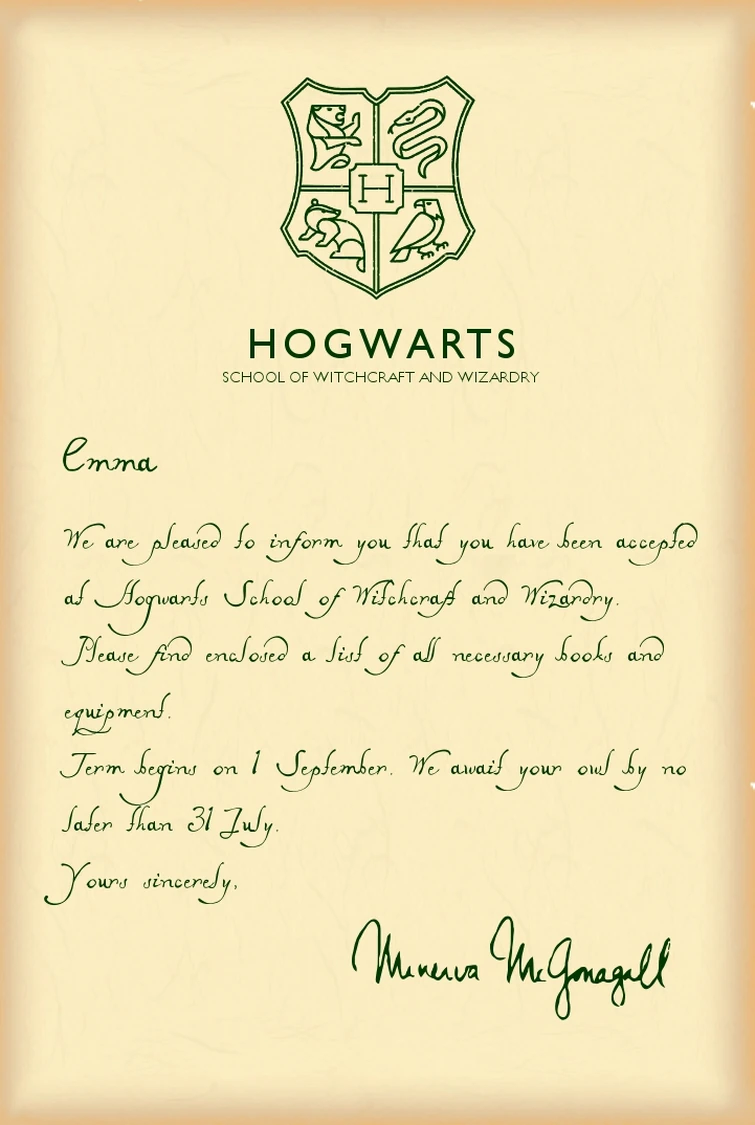 H
HOGWARTS
SCHOOL OF WITCHCRAFT AND WIZARDRY
Emma
We are pleased to inform you that you have been accepted
at Hogwarts School of Witchcraft and Wizardry.
Please find enclosed a list of all necessary books and
equipment.
Term begins on 1 September. We await your owl by no
later than 31 July.
Yours sincerely,
Minerva McGonagall